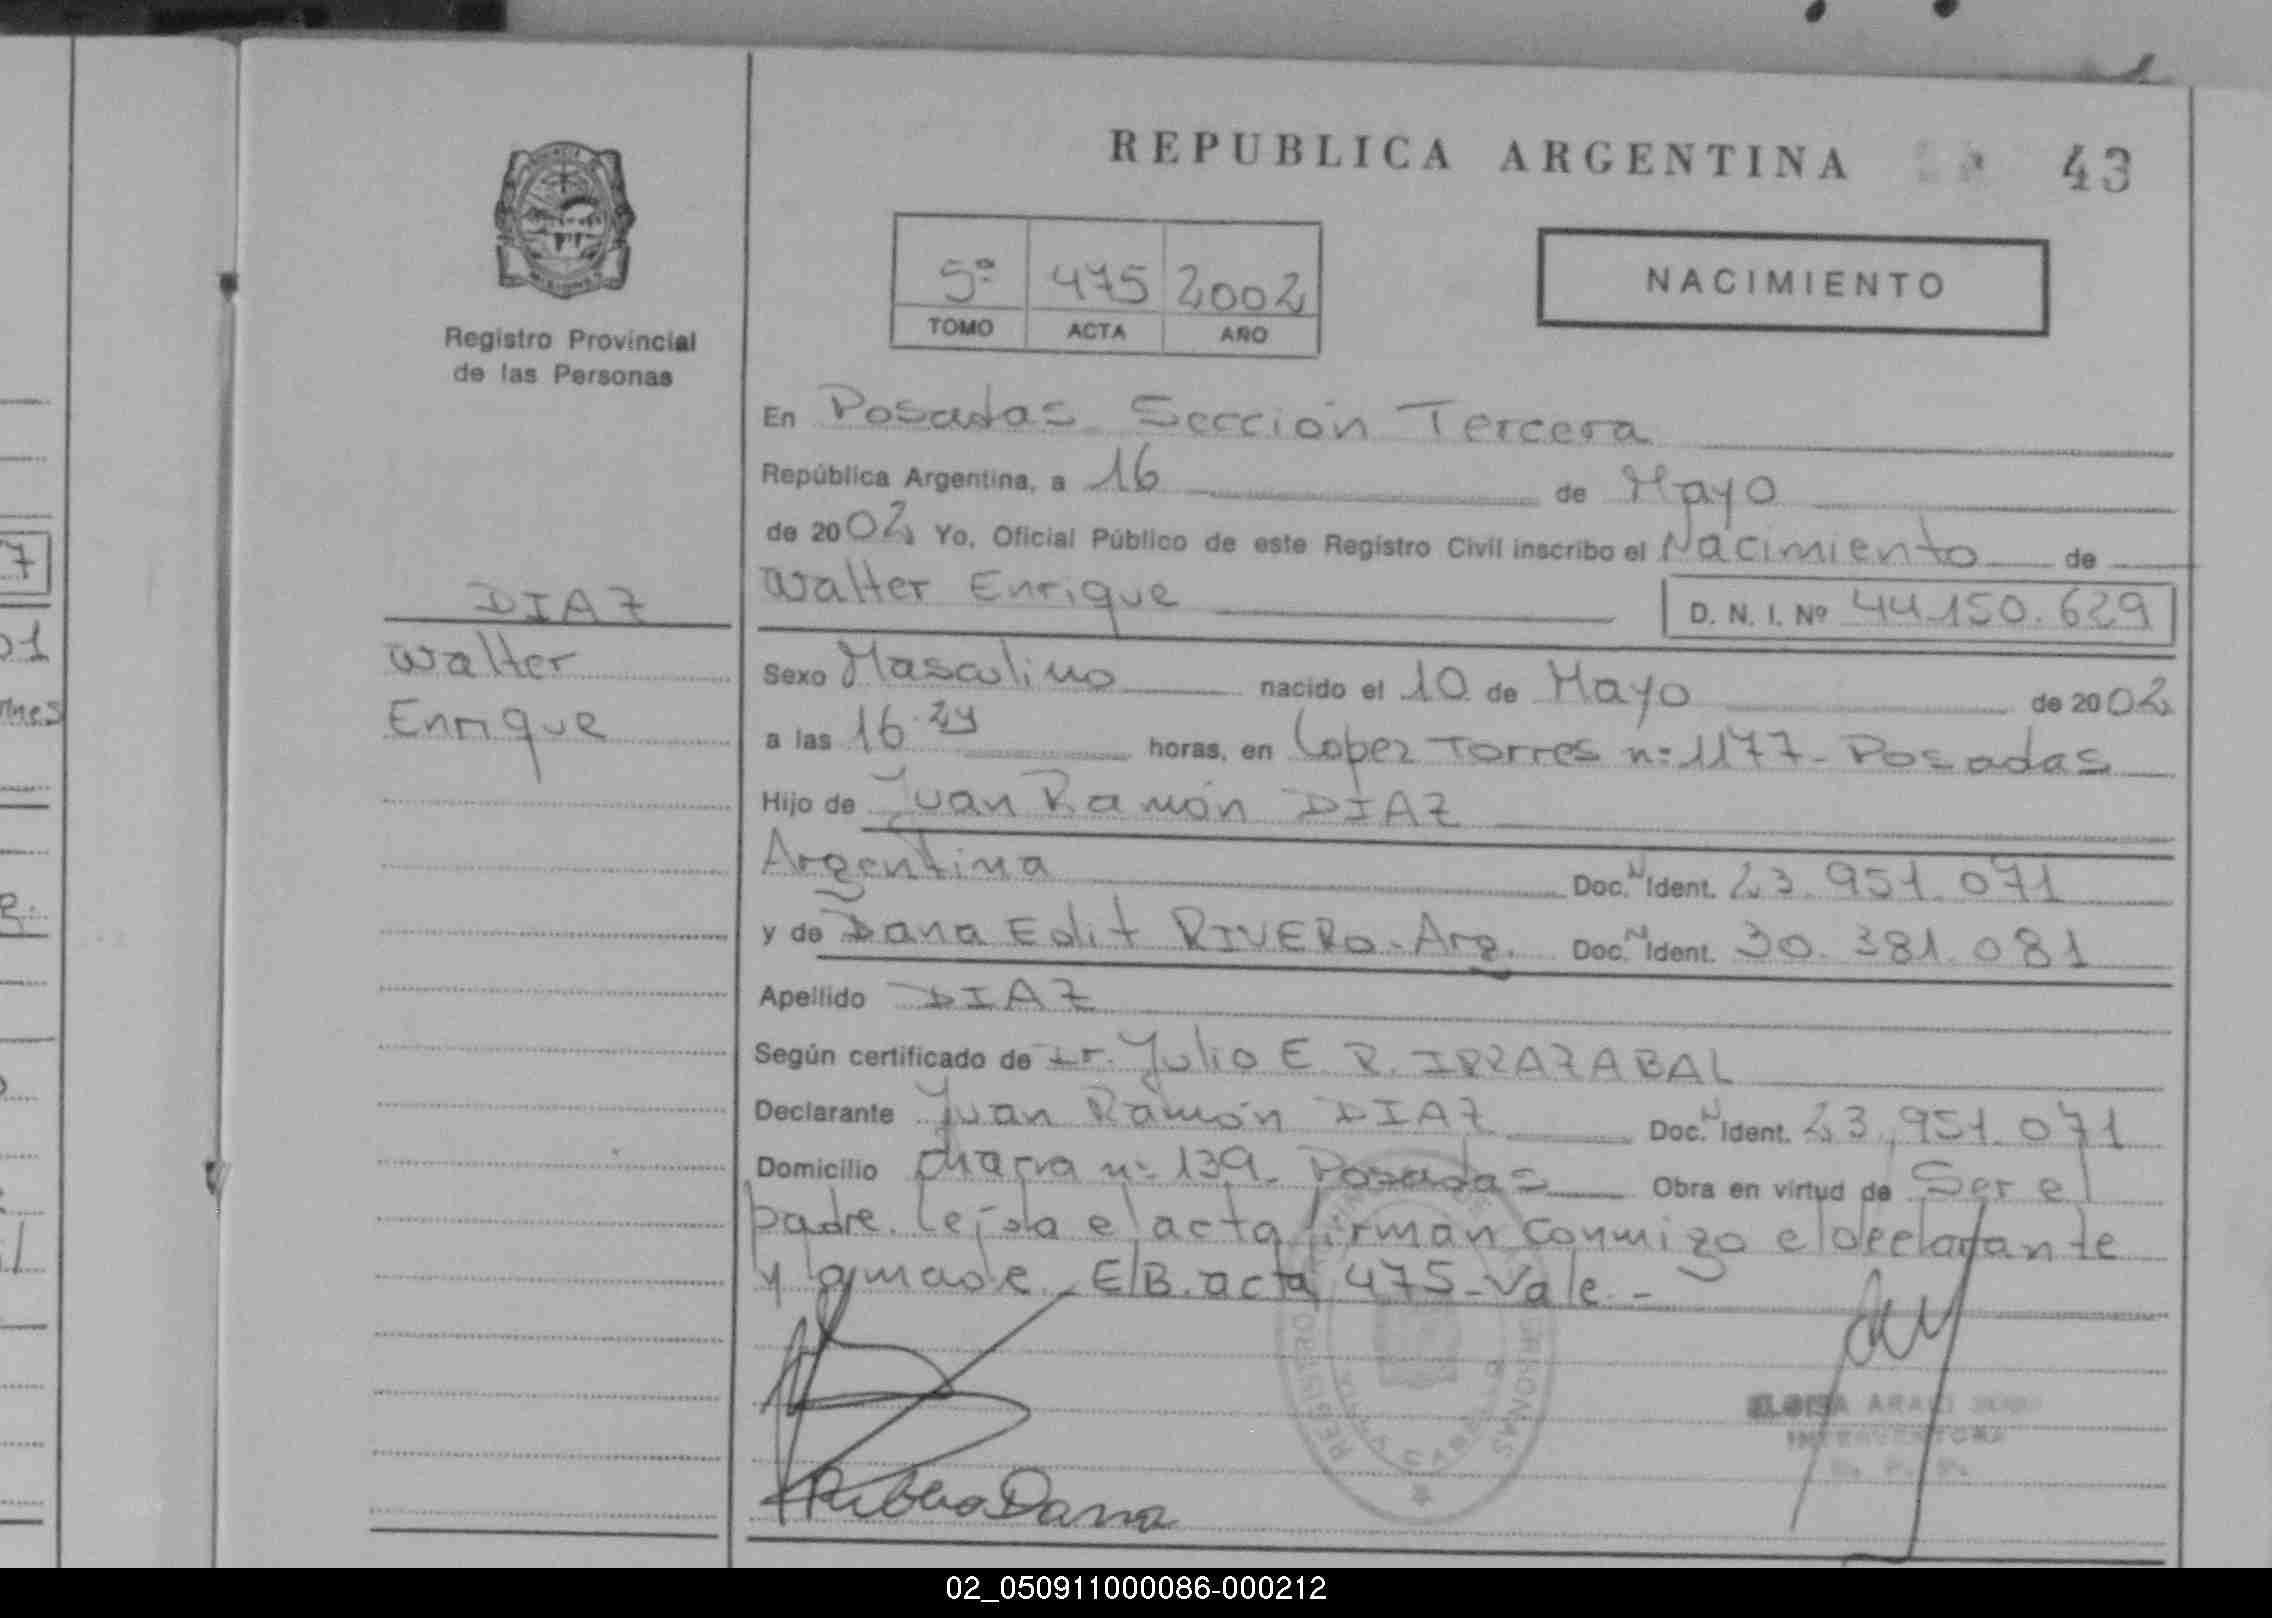 REPUBLICA ARGENTINA 43
Registro Provincial
de las Personas
5º 475 2002
TOMO ACTA AÑO
NACIMIENTO
En Posadas Sección Tercera
República Argentina, a 16 de Mayo
de 2002 Yo, Oficial Público de este Registro Civil inscribo el Nacimiento de
Walter Enrique D. N. I. Nº 44.150.629
DIAZ
Walter
Enrique
Sexo Masculino nacido el 10 de Mayo de 2002
a las 16 horas, en Lopez Torres nº 1177 - Posadas
Hijo de Juan Ramón DIAZ
Argentina Doc. N Ident. 23.951.071
y de Dana Edit RIVERO - Arg. Doc. N Ident. 30.381.081
Apellido DIAZ
Según certificado de Dr. Julio E. R. IRRAZABAL
Declarante Juan Ramón DIAZ Doc. N Ident. 23.951.071
Domicilio chacra nº 139 - Posadas Obra en virtud de Ser el
padre. leída el acta firman conmigo el declarante
y la madre. E/B. acta 475 - Vale. -
Dana
02_050911000086-000212